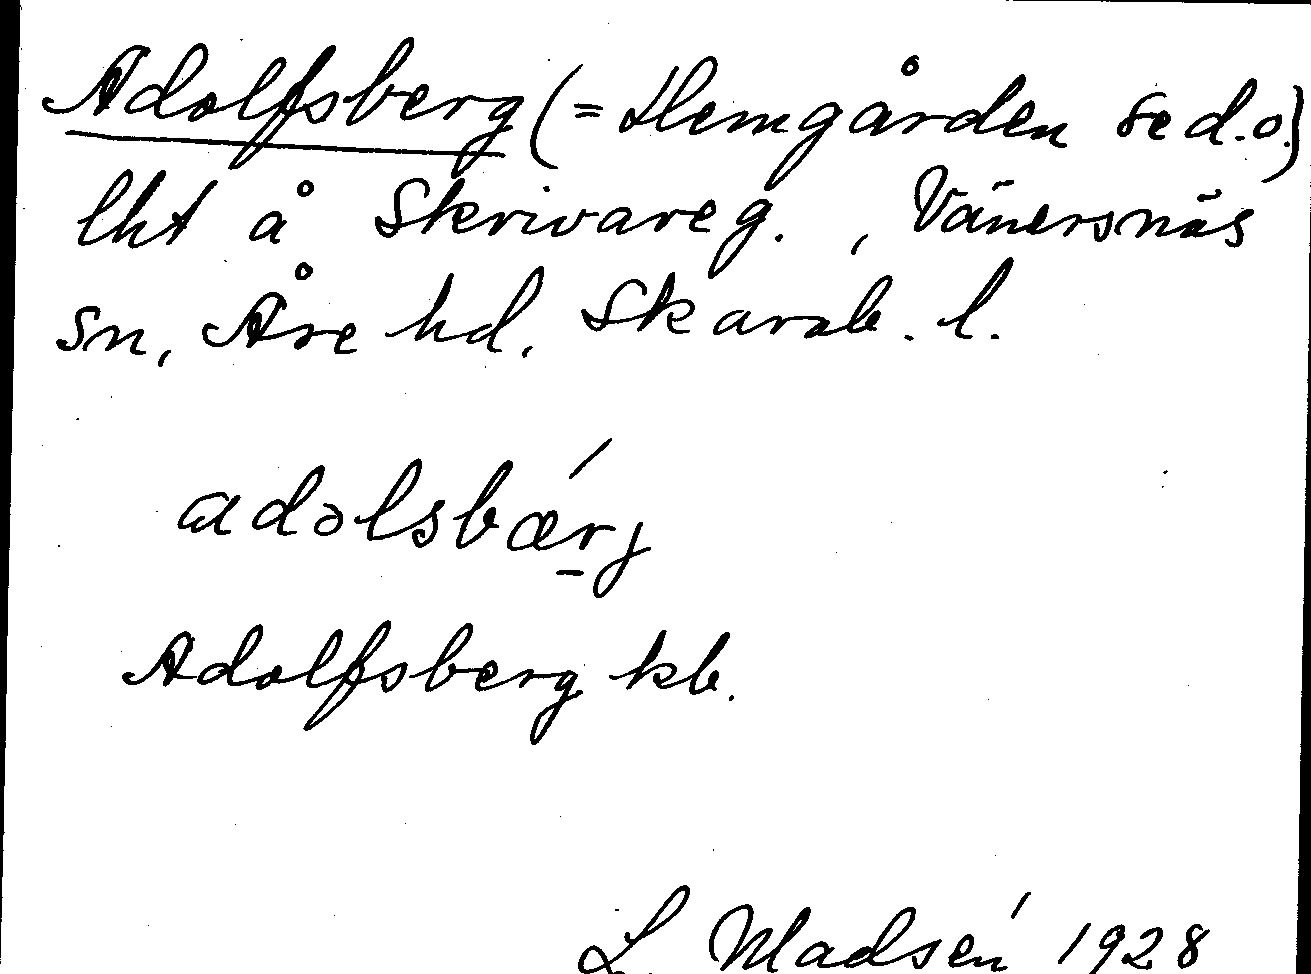 Adolfsberg (= Hemgården se d.o.)
lht å Skrivareg. , Vänersnäs
sn, Åse hd, Skarab. l.
adolsbǽr̠j
Adolfsberg kb.
L Madsén 1928